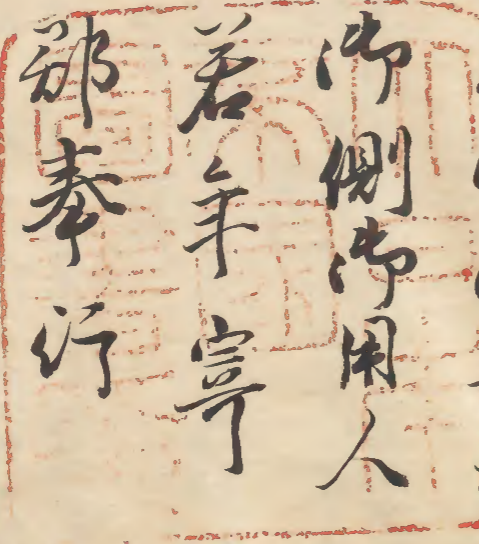 御側御用人
若年寄
郡奉行